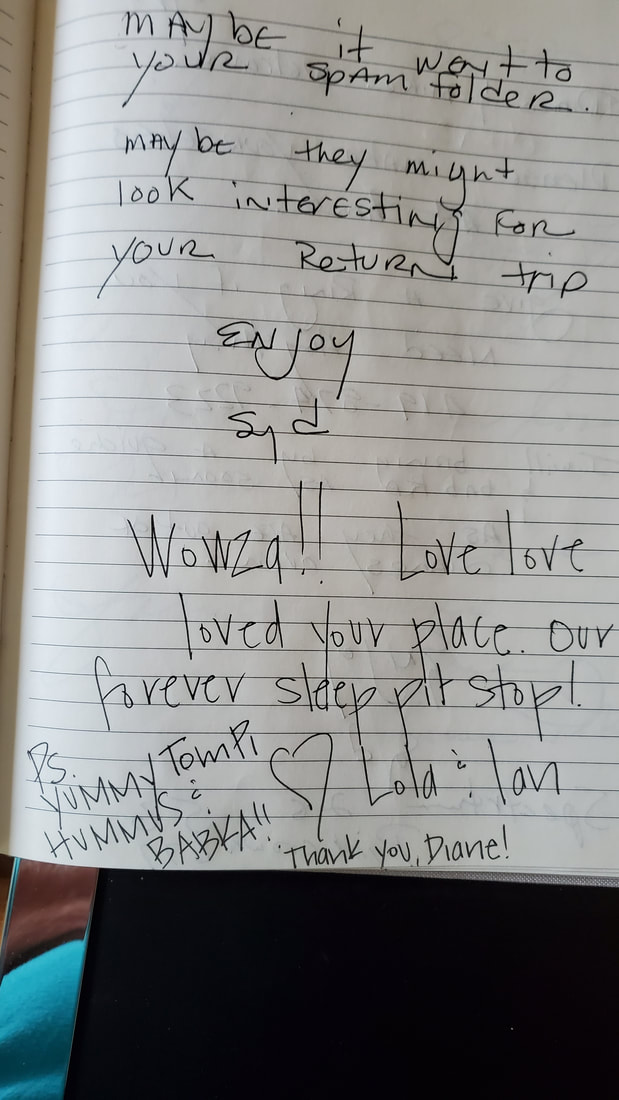 MAYBE it went to
YOUR SPAM folder.
MAYBE they might
look interesting FOR
YOUR Return trip
ENJOY
Syd
Wowza!! Love love
loved your place. Our
forever sleep pit stop!
Ps.
YUMMY TOMPi
HUMMUS &
BABKA!!
♡ Lola & Ian
Thank you, Diane!